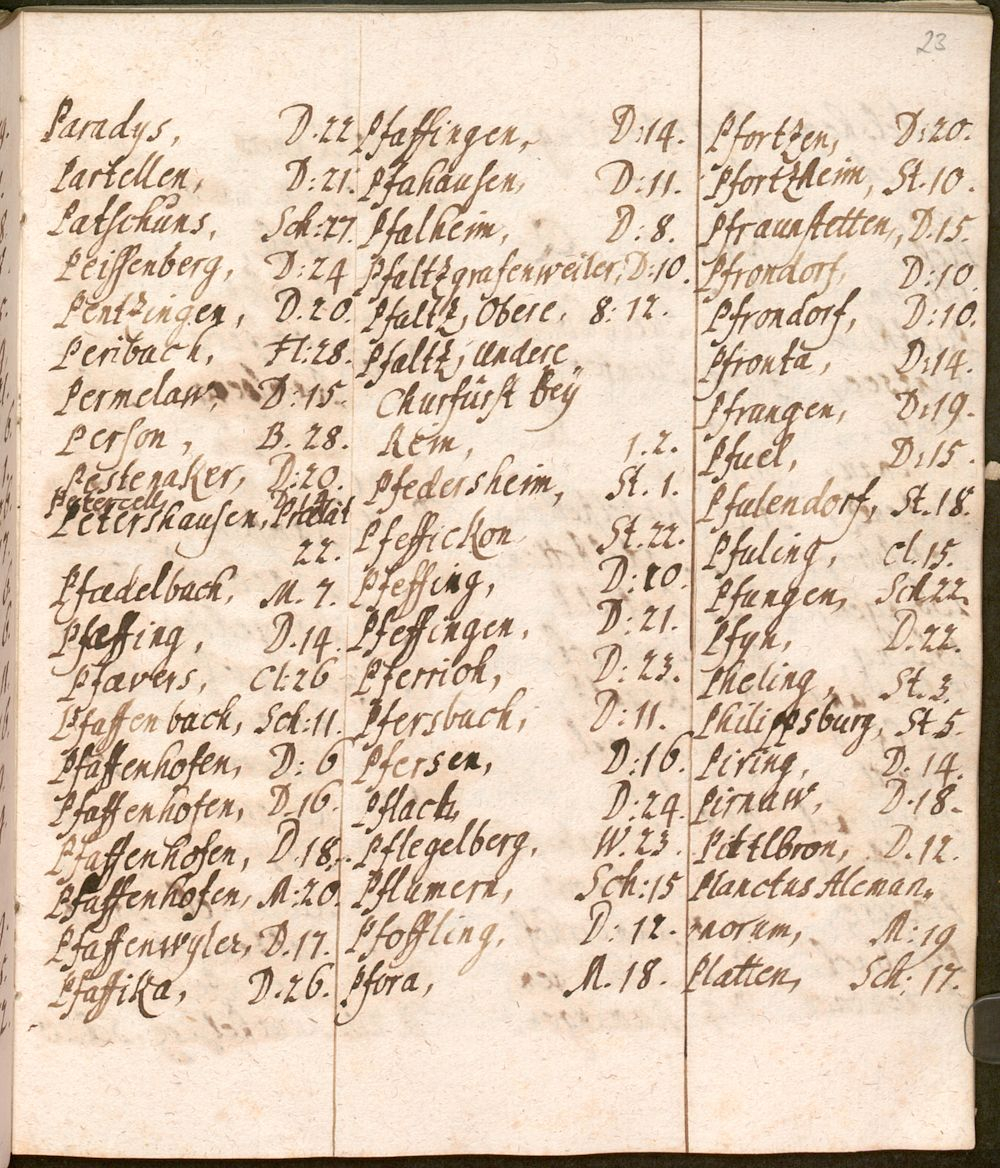 23
Paradys, D. 22
Partellen, D: 21.
Patschuns, Sch: 27.
Peissenberg, D: 24
Pentzingen, D. 20.
Peribach, Fl: 28.
Permelaw, D: 15.
Person, B. 28.
Pestenaker, D: 20.
Petercell, D. 14.
Petershausen, Prælat
22.
Pfædelbach, M. 7.
Pfæffing, D. 14.
Pfævers, Cl: 26
Pfaffenbach, Sch: 11.
Pfaffenhofen, D: 6
Pfaffenhofen, D. 16.
Pfaffenhofen, D. 18.
Pfaffenhofen, M: 20.
Pfaffenwyler, D. 17.
Pfaffika, D. 26.
Pfaffingen, D: 14.
Pfahausen, D: 11.
Pfalheim, D: 8.
Pfaltzgrafenweiler, D: 10.
Pfaltz, Obere, 8: 12.
Pfaltz, Undere,
Churfürst beÿ
Rein, 1. 2.
Pfedersheim, St. 1.
Pfeffickon St. 22.
Pfeffing, D: 20.
Pfeffingen, D: 21.
Pferrich, D: 23.
Pfersbach, D: 11.
Pfersen, D: 16.
Pflach, D: 24.
Pflegelberg, W. 23.
Pflumern, Sch: 15
Pfoffling, D: 12.
Pfora, M. 18.
Pfortzen, D: 20.
Pfortzheim, St. 10.
Pfraunstetten, D. 15.
Pfrondorf, D: 10.
Pfrondorf, D: 10.
Pfronta, D: 14.
Pfrangen, D: 19.
Pfuel, D: 15.
Pfulendorf, St. 18.
Pfuling, Cl. 15.
Pfungen, Sch 22.
Pfyn, D. 22.
Pheling, St. 3.
Philippsburg, St. 5.
Piring, D. 14.
Pirnaw, D. 18.
Pittlbron, D. 12.
Planctus Aleman„
norum, M: 19
Platten, Sch: 17.